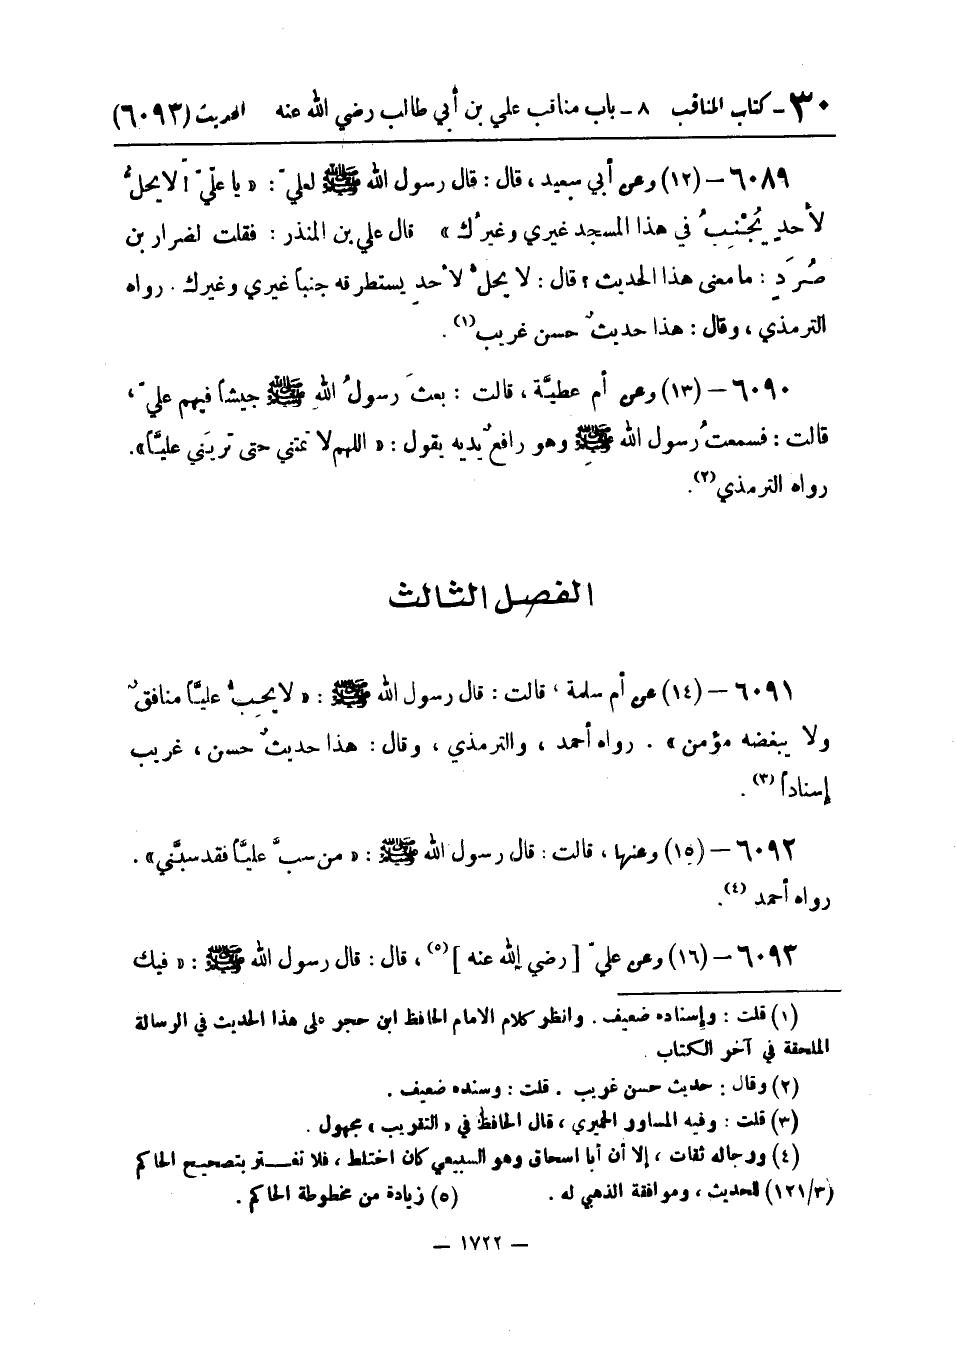 ٣٠ - كتاب المناقب ٨ - باب مناقب علي بن أبي طالب رضي الله عنه الحديث (٦٠٩٣)
٦٠٨٩ - (١٢) وعن أبي سعيد ، قال : قال رسول الله ﷺ لعليّ : « يا عليّ ! لا يحلُّ
لأحدٍ يُجْنِبُ في هذا المسجد غيري وغيرُك » قال علي بن المنذر : فقلت لضرار بن
صُرَدٍ : ما معنى هذا الحديث ؟ قال : لا يحلُّ لأحدٍ يستطرقه جنباً غيري وغيرك . رواه
الترمذي ، وقال : هذا حديثٌ حسن غريب (١) .
٦٠٩٠ - (١٣) وعن أم عطيَّة ، قالت : بعثَ رسولُ اللهِ ﷺ جيشاً فيهم عليّ ،
قالت : فسمعتُ رسول اللهِ ﷺ وهو رافعٌ يديه يقول : « اللهم لا تمتني حتى تريَني عليَّاً ».
رواه الترمذي (٢).
الفصل الثالث
٦٠٩١ - (١٤) عن أم سلمة ، قالت : قال رسول الله ﷺ : « لا يحِبُّ عليَّاً منافقٌ
ولا يبغضه مؤمن » . رواه أحمد ، والترمذي ، وقال : هذا حديثٌ حسن ، غريب
إسناداً (٣) .
٦٠٩٢ - (١٥) وعنها ، قالت : قال رسول الله ﷺ : « من سبَّ عليَّاً فقد سبَّني » .
رواه أحمد (٤).
٦٠٩٣ - (١٦) وعن عليّ [ رضي الله عنه ] (٥) ، قال : قال رسول الله ﷺ : « فيك
(١) قلت : وإسناده ضعيف . وانظر كلام الامام الحافظ ابن حجر على هذا الحديث في الرسالة
الملحقة في آخر الكتاب .
(٢) وقال : حديث حسن غريب . قلت : وسنده ضعيف .
(٣) قلت : وفيه المساور الحميري ، قال الحافظ في « التقريب » مجهول .
(٤) ورجاله ثقات ، إلا أن أبا اسحاق وهو السبيعي كان اختلط ، فلا تغتر بتصحيح الحاكم
(١٢١/٣) للحديث ، وموافقة الذهبي له . (٥) زيادة من مخطوطة الحاكم .
- ١٧٢٢ -